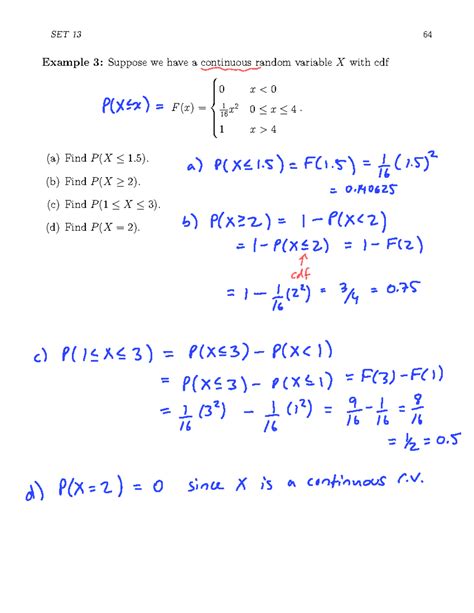 SET 13 64
Example 3: Suppose we have a continuous random variable X with cdf
P(X≤x) = F(x) = { 0 x < 0
1/16 x² 0 ≤ x ≤ 4 .
1 x > 4
(a) Find P(X ≤ 1.5).
(b) Find P(X ≥ 2).
(c) Find P(1 ≤ X ≤ 3).
(d) Find P(X = 2).
a) P(X≤1.5) = F(1.5) = 1/16 (1.5)²
= 0.140625
b) P(X≥2) = 1 - P(X<2)
= 1 - P(X≤2) = 1 - F(2)
↑
cdf
= 1 - 1/16 (2²) = 3/4 = 0.75
c) P(1≤X≤3) = P(X≤3) - P(X<1)
= P(X≤3) - P(X≤1) = F(3) - F(1)
= 1/16 (3²) - 1/16 (1²) = 9/16 - 1/16 = 8/16
= 1/2 = 0.5
d) P(X=2) = 0 since X is a continuous r.v.